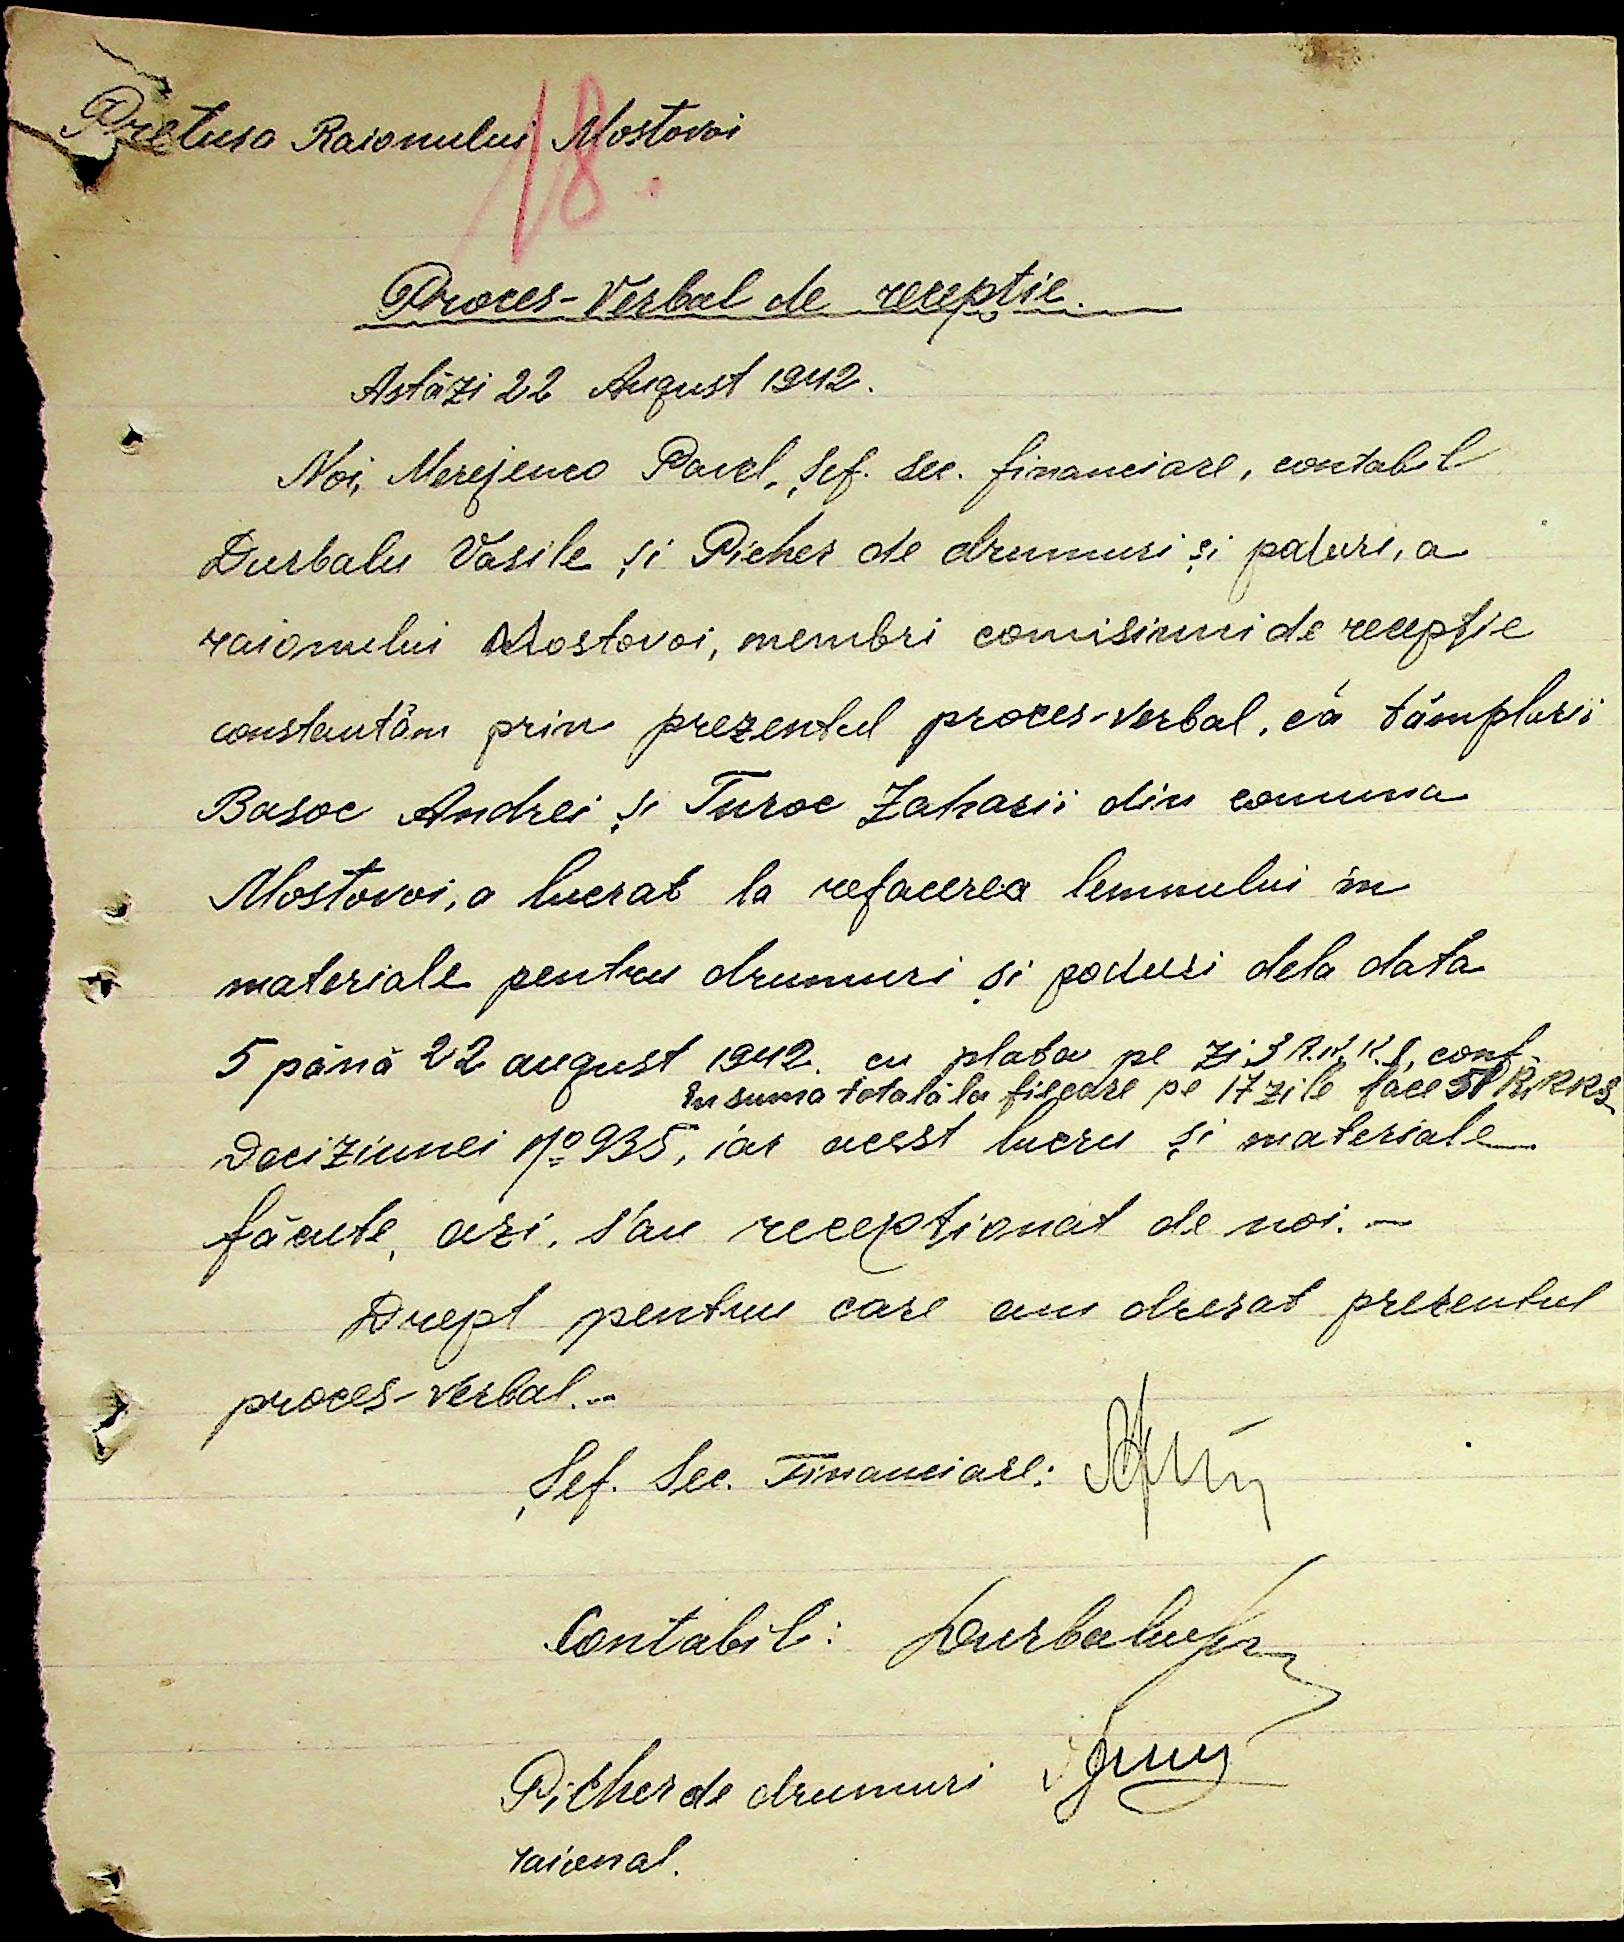 Pretura Raionului Mostovoi
18.
Proces-Verbal de recepție.
Astăzi 22 August 1942.
Noi, Merejenco Pavel, Șef. Sec. financiare, contabil
Durbalu Vasile și Picher de drumuri și poduri, a
raionului Mostovoi, membri comisiuni de recepție
constantăm prin prezentul proces-verbal, că tâmplarii
Basoc Andrei și Turoc Zaharii din comuna
Mostovoi, a lucrat la refacerea lemnului în
materiale pentru drumuri și poduri dela data
5 până 22 august 1942. cu plata pe zi 3 R.K.K.S, conf.
în suma totală la fiecare pe 17 zile face 51 R.K.K.S
Deciziunei No 935, iar acest lucru și materiale
făcute, azi, s'au recepționat de noi.-
Drept pentru care am dresat prezentul
proces-verbal.-
Șef. Sec. Financiare:
Contabil: Durbalu
Picher de drumuri
raional.